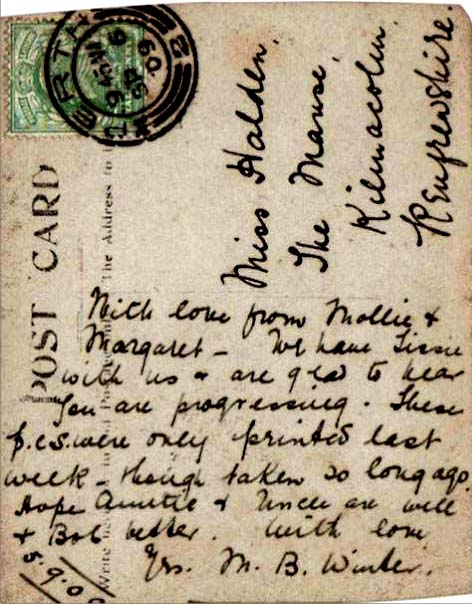 PERTH
POST CARD
The Address to
Miss Halden,
The Manse,
Kilmacolm,
Renfrewshire.
With love from Mollie &
Margaret – We have Lissie
with us & are glad to hear
you are progressing. These
p.c.s. were only printed last
week – though taken so long ago.
Hope Auntie & Uncle are well
& Bob better. With love,
Yrs. M. B. Winter.
5.9.09